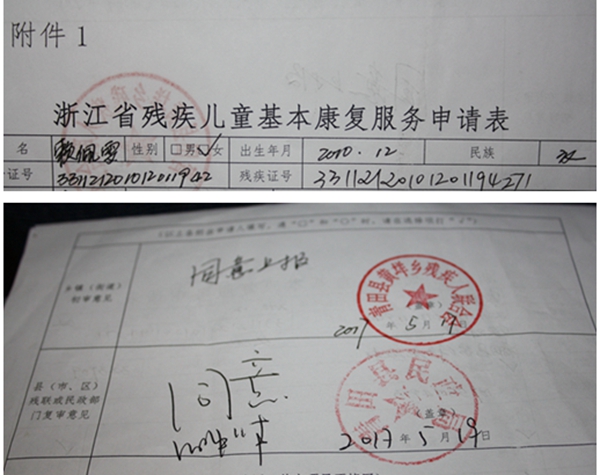 附件1
浙江省残疾儿童基本康复服务申请表
名 性别 □男 女 出生年月 2010.12 民族 汉
证号 331121201012011942 残疾证号 33112120101201194271
乡镇（街道）
初审意见
同意上报
青田县黄垟乡残疾人联合会
2017年5月19日
县（市、区）
残联或民政部
门复审意见
同意
青田县民政局
（盖章）
2017年5月19日